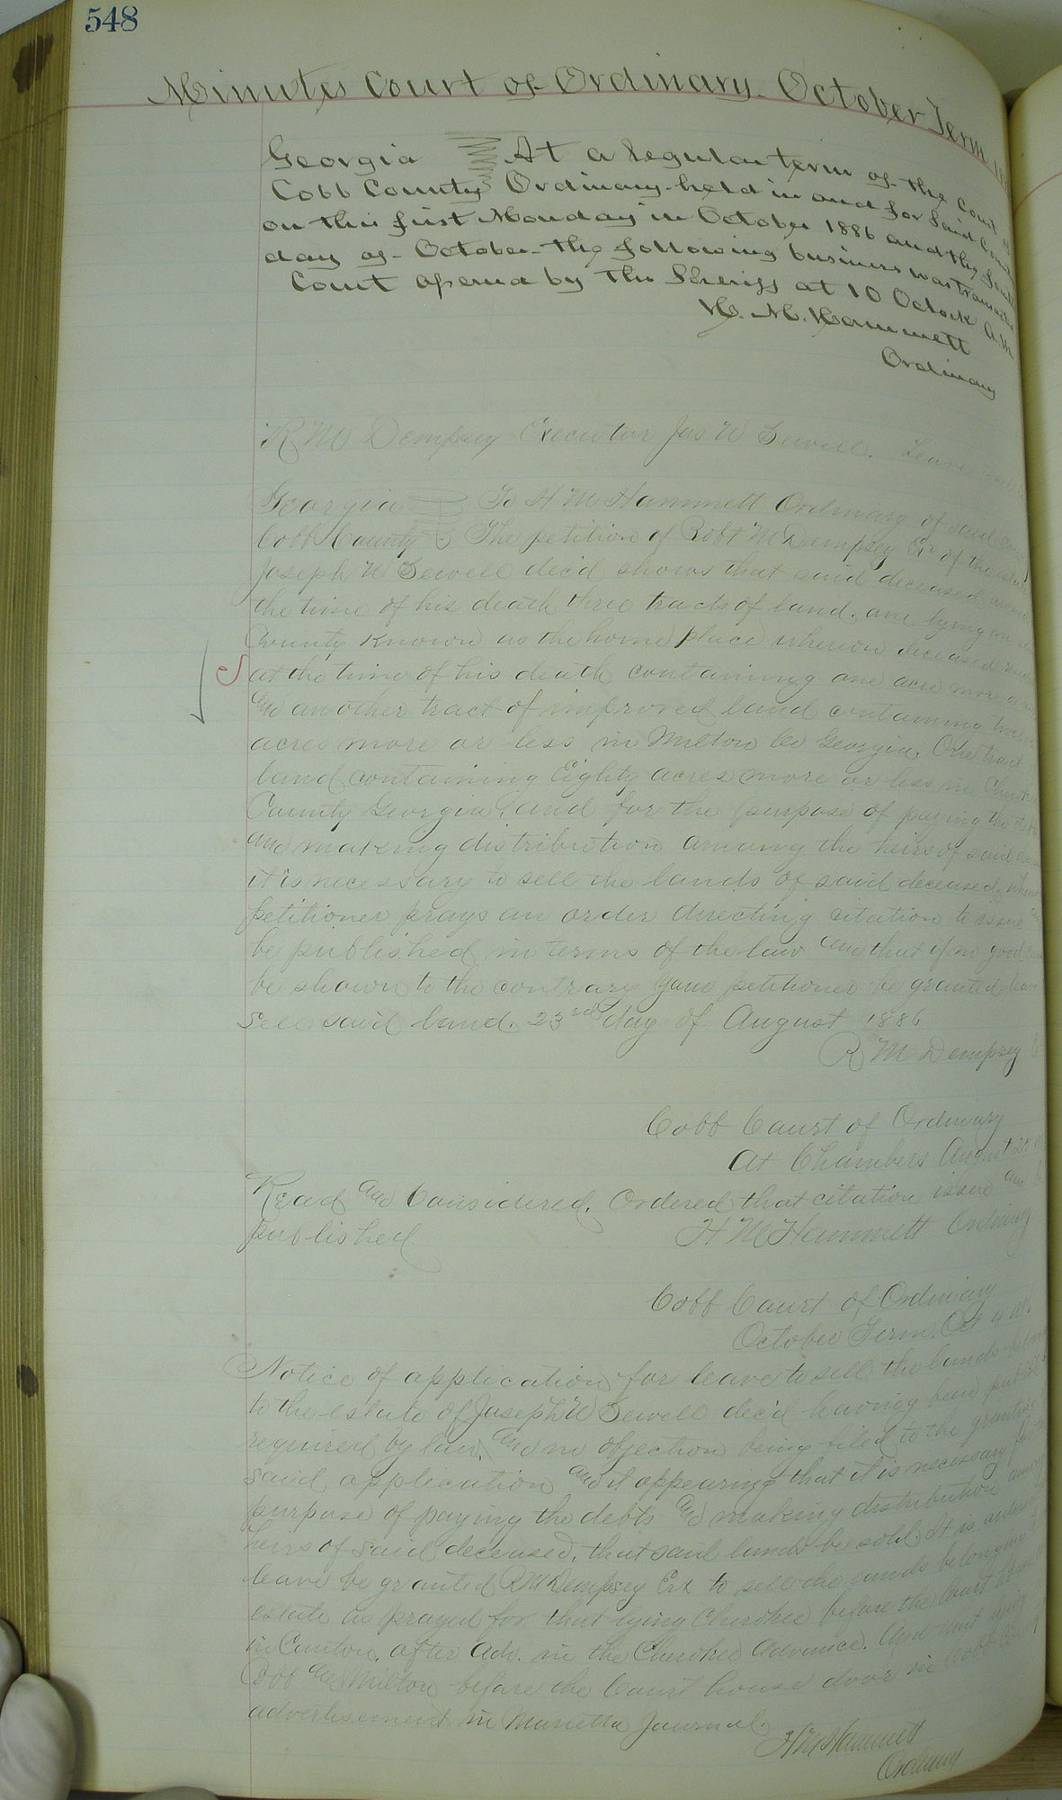 548
Minutes Court of Ordinary. October Term
Georgia At a regular term of the Court of
Cobb County Ordinary held in and for said County
on this first Monday in October 1886 and the
day of October the following business was transacted
Court opened by the Sheriff at 10 Oclock A.M
H. M. Hammett
Ordinary
R M Dempsey Executor Jas W Sewell. Leave
Georgia To H M Hammett Ordinary of said
Cobb County The petition of Robt M Dempsey Exr of the
Joseph W Sewell decd shows that said deceased
the time of his death three tracts of land, one lying
County known as the home place whereon deceased
at the time of his death containing one acre more
and another tract of improved land containing
acres more or less in Milton Co Georgia, One tract
land containing Eighty acres more or less in
County Georgia, and for the purpose of paying the
and making distribution among the heirs of said
it is necessary to sell the lands of said deceased,
petitioner prays an order directing citation to issue
be published in terms of the law and that if no good
be shown to the contrary your petitioner be granted
sell said land. 23rd day of August 1886
R M Dempsey
Cobb Court of Ordinary
At Chambers August
Read and Considered. Ordered that citation issue and
published H M Hammett Ordinary
Cobb Court of Ordinary
October Term, Oct 4
Notice of application for leave to sell the lands
to the estate of Joseph W Sewell decd having been
required by law, and no objection being filed to the granting
said application and it appearing that it is necessary for
purpose of paying the debts and making distribution among
heirs of said deceased, that said lands be sold. It is
leave be granted R M Dempsey Exr to sell the lands belonging
estate as prayed for that lying Cherokee before the Court
in Canton after Adv. in the Cherokee Advance. And that
Cobb and Milton before the Court house door in Cobb
advertisement in Marietta Journal.
H M Hammett
Ordinary